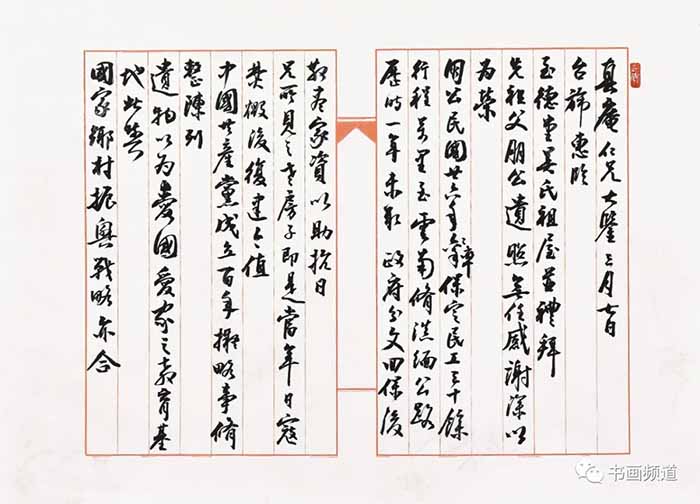 真庵仁兄大鑒三月七日
台旆惠臨
至德堂吴氏祖屋並禮拜
先祖父朋公遺照無任感謝深以
為榮
朋公民國廿六年率保定民工三十餘
行程萬里至雲南脩滇緬公路
歷時一年未取 政府分文回保後
散盡家資以助抗日
兄所見之老房子即是當年日寇
焚燬後復建今值
中國共產黨成立百年擬略事脩
整陳列
遺物以為愛國愛家之教育基
地此舉
國家鄉村振興戰略亦合
书画频道